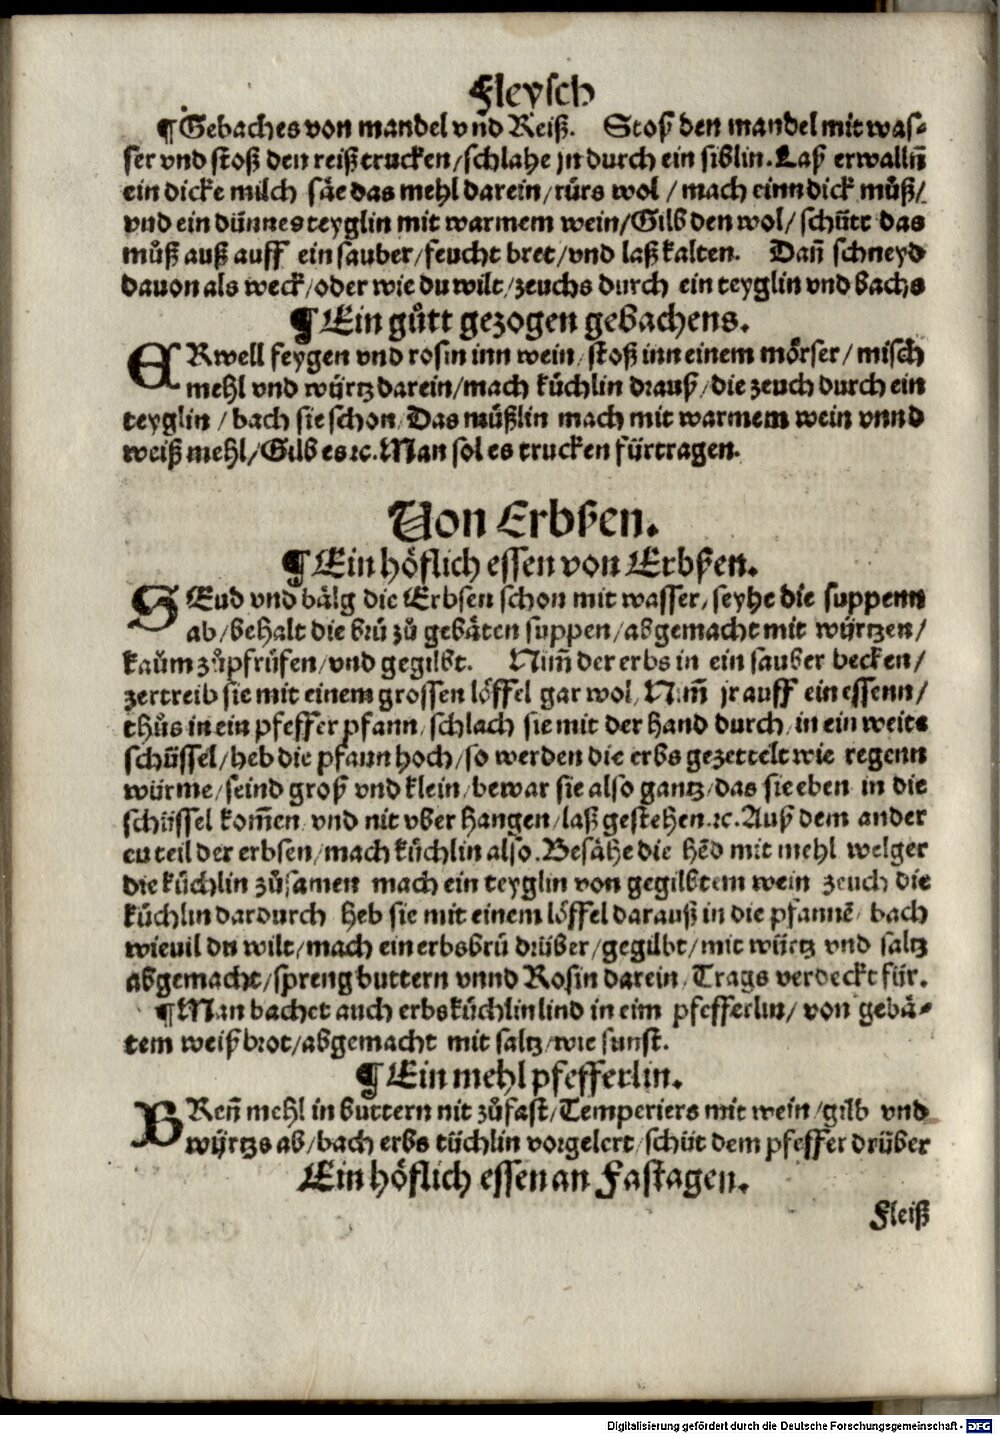 Fleysch
¶Gebaches von mandel vnd Reiß. Stoß den mandel mit was⸗
ser vnd stoß den reiß trucken/schlahe jn durch ein siblin. Laß erwalln̄
ein dicke milch säe das mehl darein/rürs wol/mach einn dick můß/
vnd ein dünnes teyglin mit warmem wein/Gilb den wol/schütt das
můß auß auff ein sauber/feucht bret/vnd laß kalten. Dan̄ schneyd
dauon als weck/oder wie du wilt/zeuchs durch ein teyglin vnd bachs
¶Ein gůtt gezogen gebachens.
ERwell feygen vnd rosin inn wein/stoß inn einem mörser/misch
mehl vnd würtz darein/mach küchlin drauß/die zeuch durch ein
teyglin/bach sie schon/Das můßlin mach mit warmem wein vnnd
weiß mehl/Gilb es ꝛc. Man sol es trucken fürtragen.
Von Erbßen.
¶Ein höflich essen von Erbßen.
SEud vnd bälg die Erbsen schon mit wasser/seyhe die suppenn
ab/behalt die brü zů gebäten suppen/abgemacht mit würtzen/
kaům zůpfrüfen/vnd gegilbt. Nim̄ der erbs in ein sauber becken/
zertreib sie mit einem grossen löffel gar wol/Nim̄ jr auff ein essenn/
thůs in ein pfeffer pfann/schlach sie mit der hand durch/in ein weite
schüssel/heb die pfann hoch/so werden die erbs gezettelt wie regenn
würme/seind groß vnd klein/bewar sie also gantz/das sie eben in die
schüssel kom̄en/vnd nit vber hangen/laß gestehen.ꝛc. Auß dem ander
en teil der erbsen/mach küchlin also. Besähe die hēd mit mehl welger
die küchlin zůsamen mach ein teyglin von gegilbtem wein zeuch die
küchlin dardurch heb sie mit einem löffel darauß in die pfannē/bach
wieuil du wilt/mach ein erbsbrü drüber/gegilbt/mit würtz vnd saltz
abgemacht/spreng buttern vnnd Rosin darein/Trags verdeckt für.
¶Man bachet auch erbsküchlin lind in eim pfefferlin/von gebä⸗
tem weiß brot/abgemacht mit saltz/wie sunst.
¶Ein mehl pfefferlin.
BRen̄ mehl in buttern nit zůfast/Temperiers mit wein/gilb vnd
würtzs ab/bach erbs küchlin vorgelert/schüt dem pfeffer drüber
Ein höflich essen an Fastagen.
Fleiß
Digitalisierung gefördert durch die Deutsche Forschungsgemeinschaft - DFG